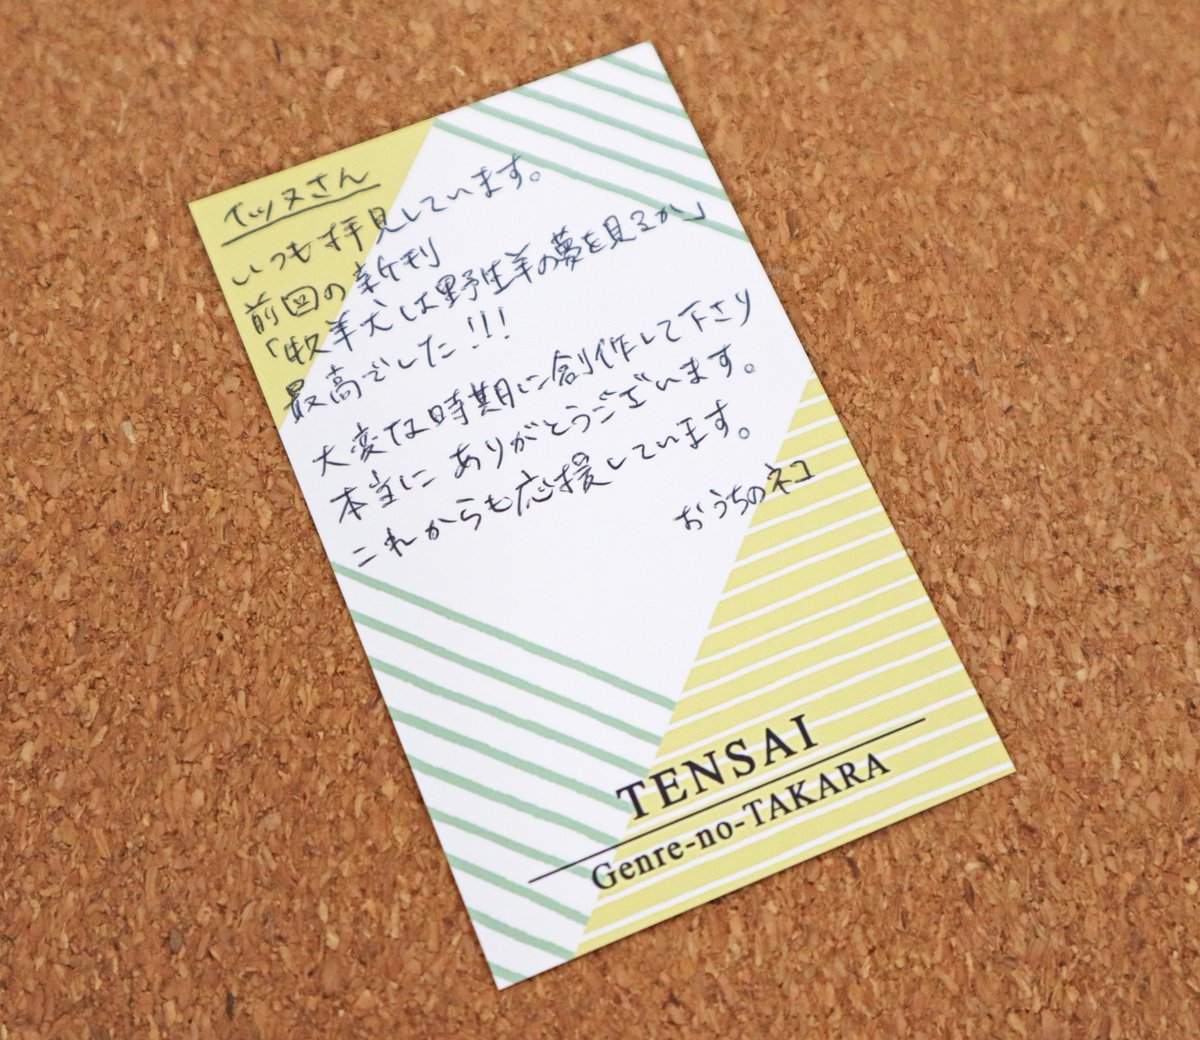 イッヌさん
いつも拝見しています。
前回の新刊
「牧羊犬は野生羊の夢を見るか」
最高でした!!!
大変な時期に創作して下さり
本当にありがとうございます。
これからも応援しています。
おうちのネコ
TENSAI
Genre-no-TAKARA